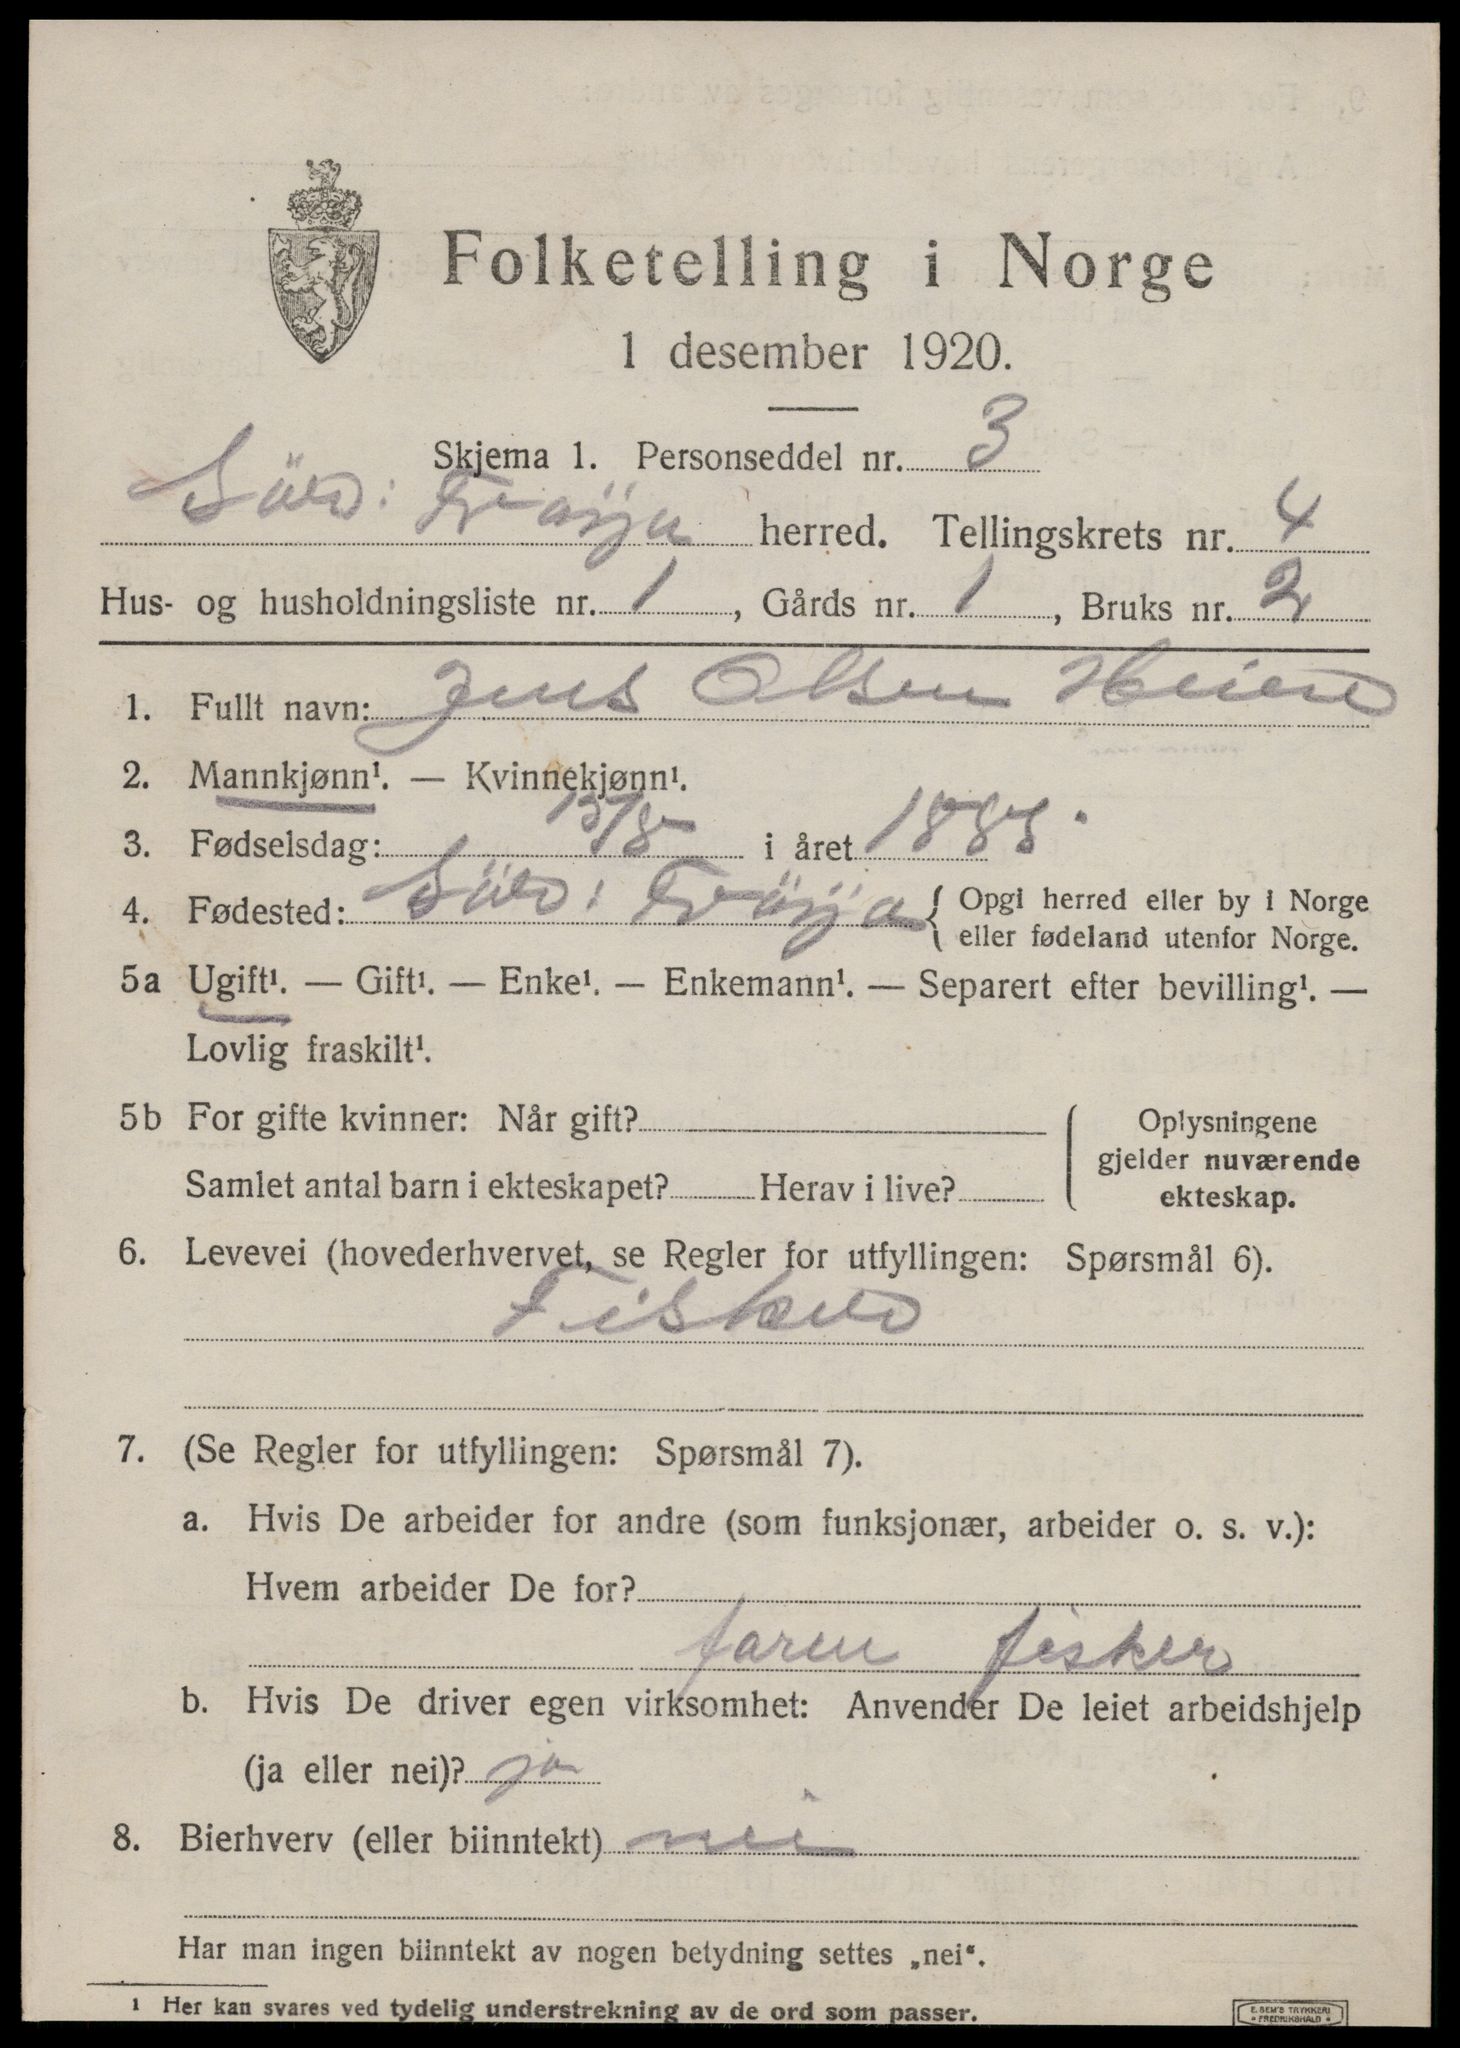 Folketelling i Norge
1 desember 1920.
Skjema 1. Personseddel nr. 3
Sör: Fröya herred. Tellingskrets nr. 4
Hus- og husholdningsliste nr. 1, Gårds nr. 1, Bruks nr. 2
1. Fullt navn: Jens Olsen
2. Mannkjønn¹. — Kvinnekjønn¹.
3. Fødselsdag: 13/8 i året 1883.
4. Fødested: Sör: Fröya { Opgi herred eller by i Norge
eller fødeland utenfor Norge.
5a Ugift¹. — Gift¹. — Enke¹. — Enkemann¹. — Separert efter bevilling¹. —
Lovlig fraskilt¹.
5b For gifte kvinner: Når gift?
Samlet antal barn i ekteskapet? Herav i live?
Oplysningene
gjelder nuværende
ekteskap.
6. Levevei (hovederhvervet, se Regler for utfyllingen: Spørsmål 6).
Fisker
7. (Se Regler for utfyllingen: Spørsmål 7).
a. Hvis De arbeider for andre (som funksjonær, arbeider o. s. v.):
Hvem arbeider De for?
faren fisker
b. Hvis De driver egen virksomhet: Anvender De leiet arbeidshjelp
(ja eller nei)? ja
8. Bierhverv (eller biinntekt) nei
Har man ingen biinntekt av nogen betydning settes „nei“.
1 Her kan svares ved tydelig understrekning av de ord som passer.
E. SEM'S TRYKKERI
FREDRIKSHALD